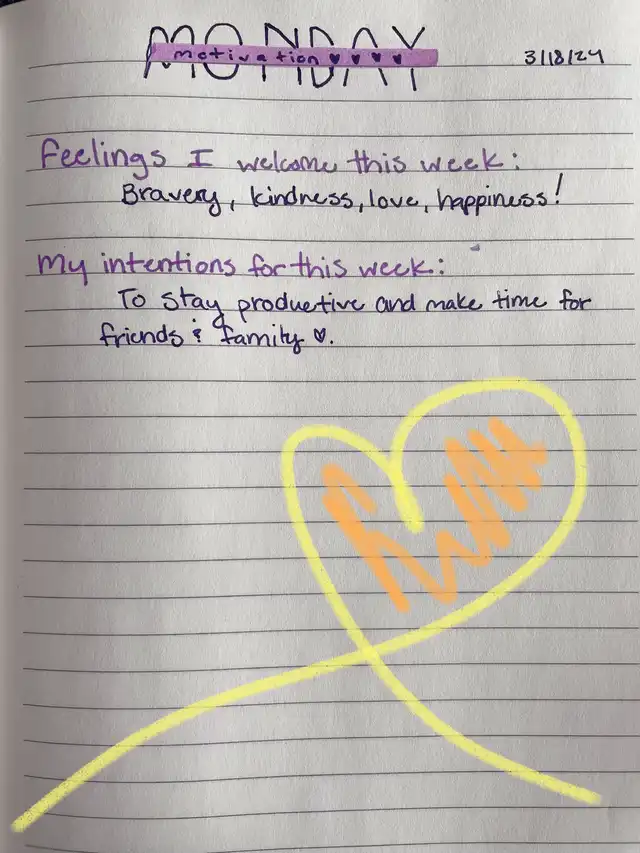 MONDAY
motivation ♥ ♥ ♥ ♥
3/18/24
Feelings I welcome this week:
Bravery, kindness, love, happiness!
My intentions for this week:
To stay productive and make time for
friends & family ♥.